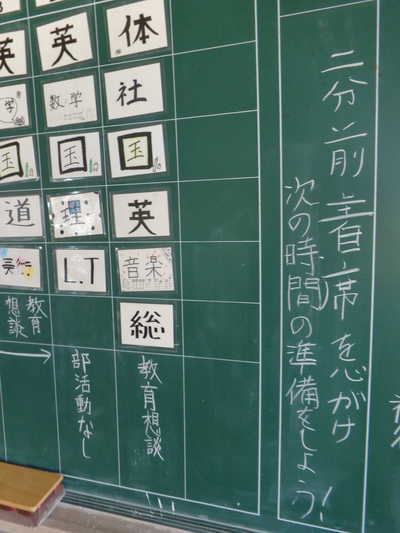 二分前着席を心がけ
次の時間の準備をしよう!
体
社
国
英
音楽
総
教育想談
英
数学
国
理
L.T
部活動なし
英
学
国
道
教育
想談